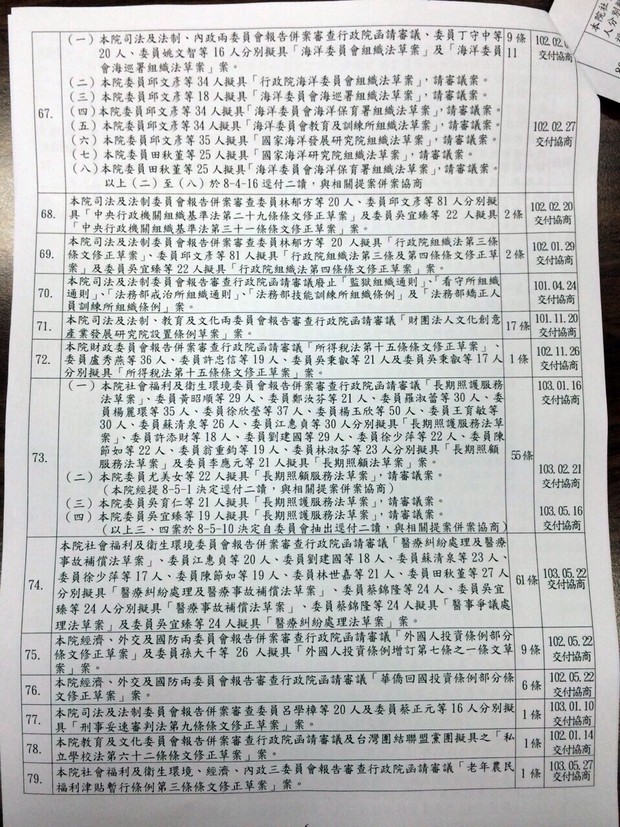 67.
(一)本院司法及法制、內政兩委員會報告併案審查行政院函請審議、委員丁守中等
20人、委員姚文智等16人分別擬具「海洋委員會組織法草案」及「海洋委員
會海巡署組織法草案」案。
(二)本院委員邱文彥等34人擬具「行政院海洋委員會組織法草案」，請審議案。
(三)本院委員邱文彥等18人擬具「海洋委員會海巡署組織法草案」，請審議案。
(四)本院委員邱文彥等34人擬具「海洋委員會海洋保育署組織法草案」，請審議案。
(五)本院委員邱文彥等34人擬具「海洋委員會教育及訓練所組織法草案」，請審議案。
(六)本院委員邱文彥等35人擬具「國家海洋發展研究院組織法草案」，請審議案。
(七)本院委員田秋堇等25人擬具「國家海洋研究院組織法草案」，請審議案。
(八)本院委員田秋堇等25人擬具「海洋委員會海洋保育署組織法草案」，請審議案。
以上(二)至(八)於8-4-16逕付二讀，與相關提案併案協商
9條
11
102.02.0
交付協商
102.02.27
交付協商
68.
本院司法及法制委員會報告併案審查委員林郁方等20人、委員邱文彥等81人分別擬
具「中央行政機關組織基準法第二十九條條文修正草案」及委員吳宜臻等22人擬具
「中央行政機關組織基準法第三十一條條文修正草案」案。
2條
102.02.20
交付協商
69.
本院司法及法制委員會報告併案審查委員林郁方等20人擬具「行政院組織法第三條
條文修正草案」、委員邱文彥等81人擬具「行政院組織法第三條及第四條條文修正草
案」及委員吳宜臻等22人擬具「行政院組織法第四條條文修正草案」案。
2條
102.01.29
交付協商
70.
本院司法及法制委員會報告審查行政院函請審議廢止「監獄組織通則」、「看守所組織
通則」、「法務部戒治所組織通則」、「法務部技能訓練所組織條例」及「法務部矯正人
員訓練所組織條例」案。
101.04.24
交付協商
71.
本院司法及法制、教育及文化兩委員會報告審查行政院函請審議「財團法人文化創意
產業發展研究院設置條例草案」案。
17條
101.11.20
交付協商
72.
本院財政委員會報告併案審查行政院函請審議「所得稅法第十五條條文修正草案」、
委員盧秀燕等36人、委員許忠信等19人、委員吳秉叡等21人及委員吳秉叡等17人
分別擬具「所得稅法第十五條條文修正草案」案。
1條
102.11.26
交付協商
73.
(一)本院社會福利及衛生環境委員會報告併案審查行政院函請審議「長期照護服務
法草案」、委員黃昭順等29人、委員鄭汝芬等21人、委員羅淑蕾等30人、委
員楊麗環等35人、委員徐欣瑩等37人、委員楊玉欣等50人、委員王育敏等
30人、委員蘇清泉等26人、委員江惠貞等30人分別擬具「長期照護服務法草
案」、委員許添財等18人、委員劉建國等29人、委員徐少萍等22人、委員陳
節如等22人、委員翁重鈞等19人、委員林淑芬等23人分別擬具「長期照顧
服務法草案」及委員李應元等21人擬具「長期照顧法草案」案。
(二)本院委員尤美女等22人擬具「長期照顧服務法草案」，請審議案。
(本院經提8-5-1決定逕付二讀，與相關提案併案協商)
(三)本院委員吳育仁等21人擬具「長期照護服務法草案」，請審議案。
(四)本院委員吳宜臻等19人擬具「長期照護服務法草案」，請審議案。
(以上三、四案於8-5-10決定自委員會抽出逕付二讀，與相關提案併案協商)
55條
103.01.16
交付協商
103.02.21
交付協商
103.05.16
交付協商
74.
本院社會福利及衛生環境委員會報告併案審查行政院函請審議「醫療糾紛處理及醫療
事故補償法草案」、委員江惠貞等20人、委員劉建國等18人、委員蘇清泉等23人、
委員徐少萍等17人、委員陳節如等19人、委員林世嘉等21人、委員田秋堇等27人
分別擬具「醫療糾紛處理及醫療事故補償法草案」、委員蔡錦隆等24人、委員吳宜
臻等24人分別擬具「醫療事故補償法草案」、委員蔡錦隆等24人擬具「醫事爭議處
理法草案」及委員吳宜臻等24人擬具「醫療糾紛處理法草案」案。
61條
103.05.22
交付協商
75.
本院經濟、外交及國防兩委員會報告併案審查行政院函請審議「外國人投資條例部分
條文修正草案」及委員孫大千等26人擬具「外國人投資條例增訂第七條之一條文草
案」案。
9條
102.05.22
交付協商
76.
本院經濟、外交及國防兩委員會報告審查行政院函請審議「華僑回國投資條例部分條
文修正草案」案。
6條
102.05.22
交付協商
77.
本院司法及法制委員會報告併案審查委員呂學樟等20人及委員蔡正元等16人分別擬
具「刑事妥速審判法第九條條文修正草案」案。
1條
103.01.10
交付協商
78.
本院教育及文化委員會報告併案審查行政院函請審議及台灣團結聯盟黨團擬具之「私
立學校法第六十二條條文修正草案」案。
1條
102.01.14
交付協商
79.
本院社會福利及衛生環境、經濟、內政三委員會報告審查行政院函請審議「老年農民
福利津貼暫行條例第三條條文修正草案」案。
1條
103.05.27
交付協商